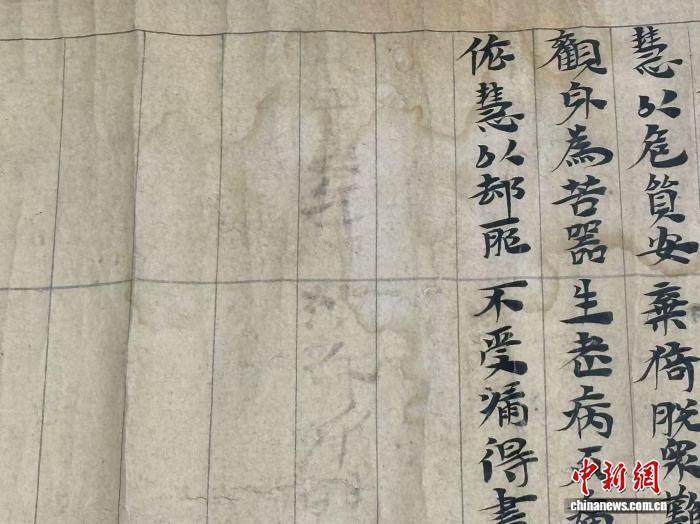 慧以危質安棄猗脫衆難
觀身為苦器生老病无
依慧以却眠不受痛得
中新網
chinanews.com.cn